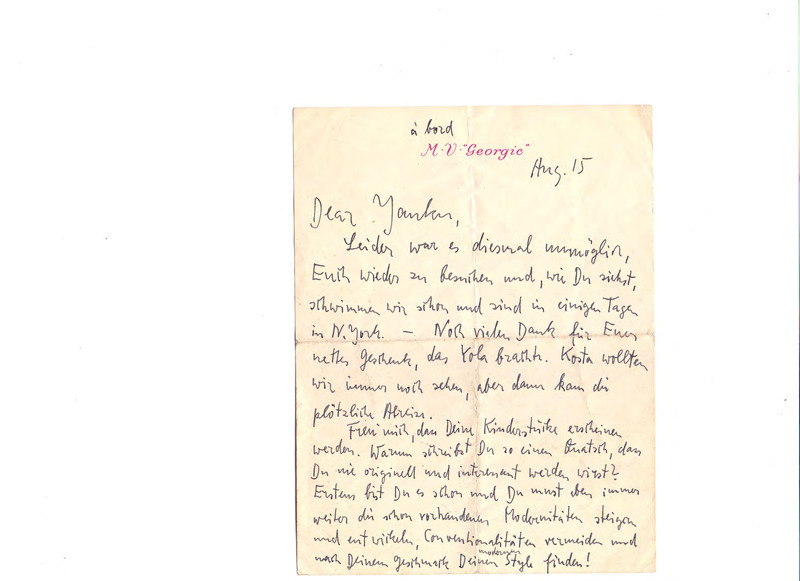 à bord
M·V·"Georgic"
Aug. 15
Dear Yantku,
Leider war es diesmal unmöglich,
Euch wieder zu besuchen und, wie Du siehst,
schwimmen wir schon und sind in einigen Tagen
in N.York. — Noch vielen Dank für Euer
nettes Geschenk, das Yola brachte. Kosta wollten
wir immer noch sehen, aber dann kam die
plötzliche Abreise.
Freu mich, dass Deine Kinderstücke erscheinen
werden. Warum schreibst Du so einen Quatsch, dass
Du nie originell und interessant werden wirst?
Erstens bist Du es schon und Du must eben immer
weiter die schon vorhandenen Modernitäten steigern
und entwickeln, Conventionalitäten vermeiden und
nach Deinem Geschmack Deinen modernen Style finden!